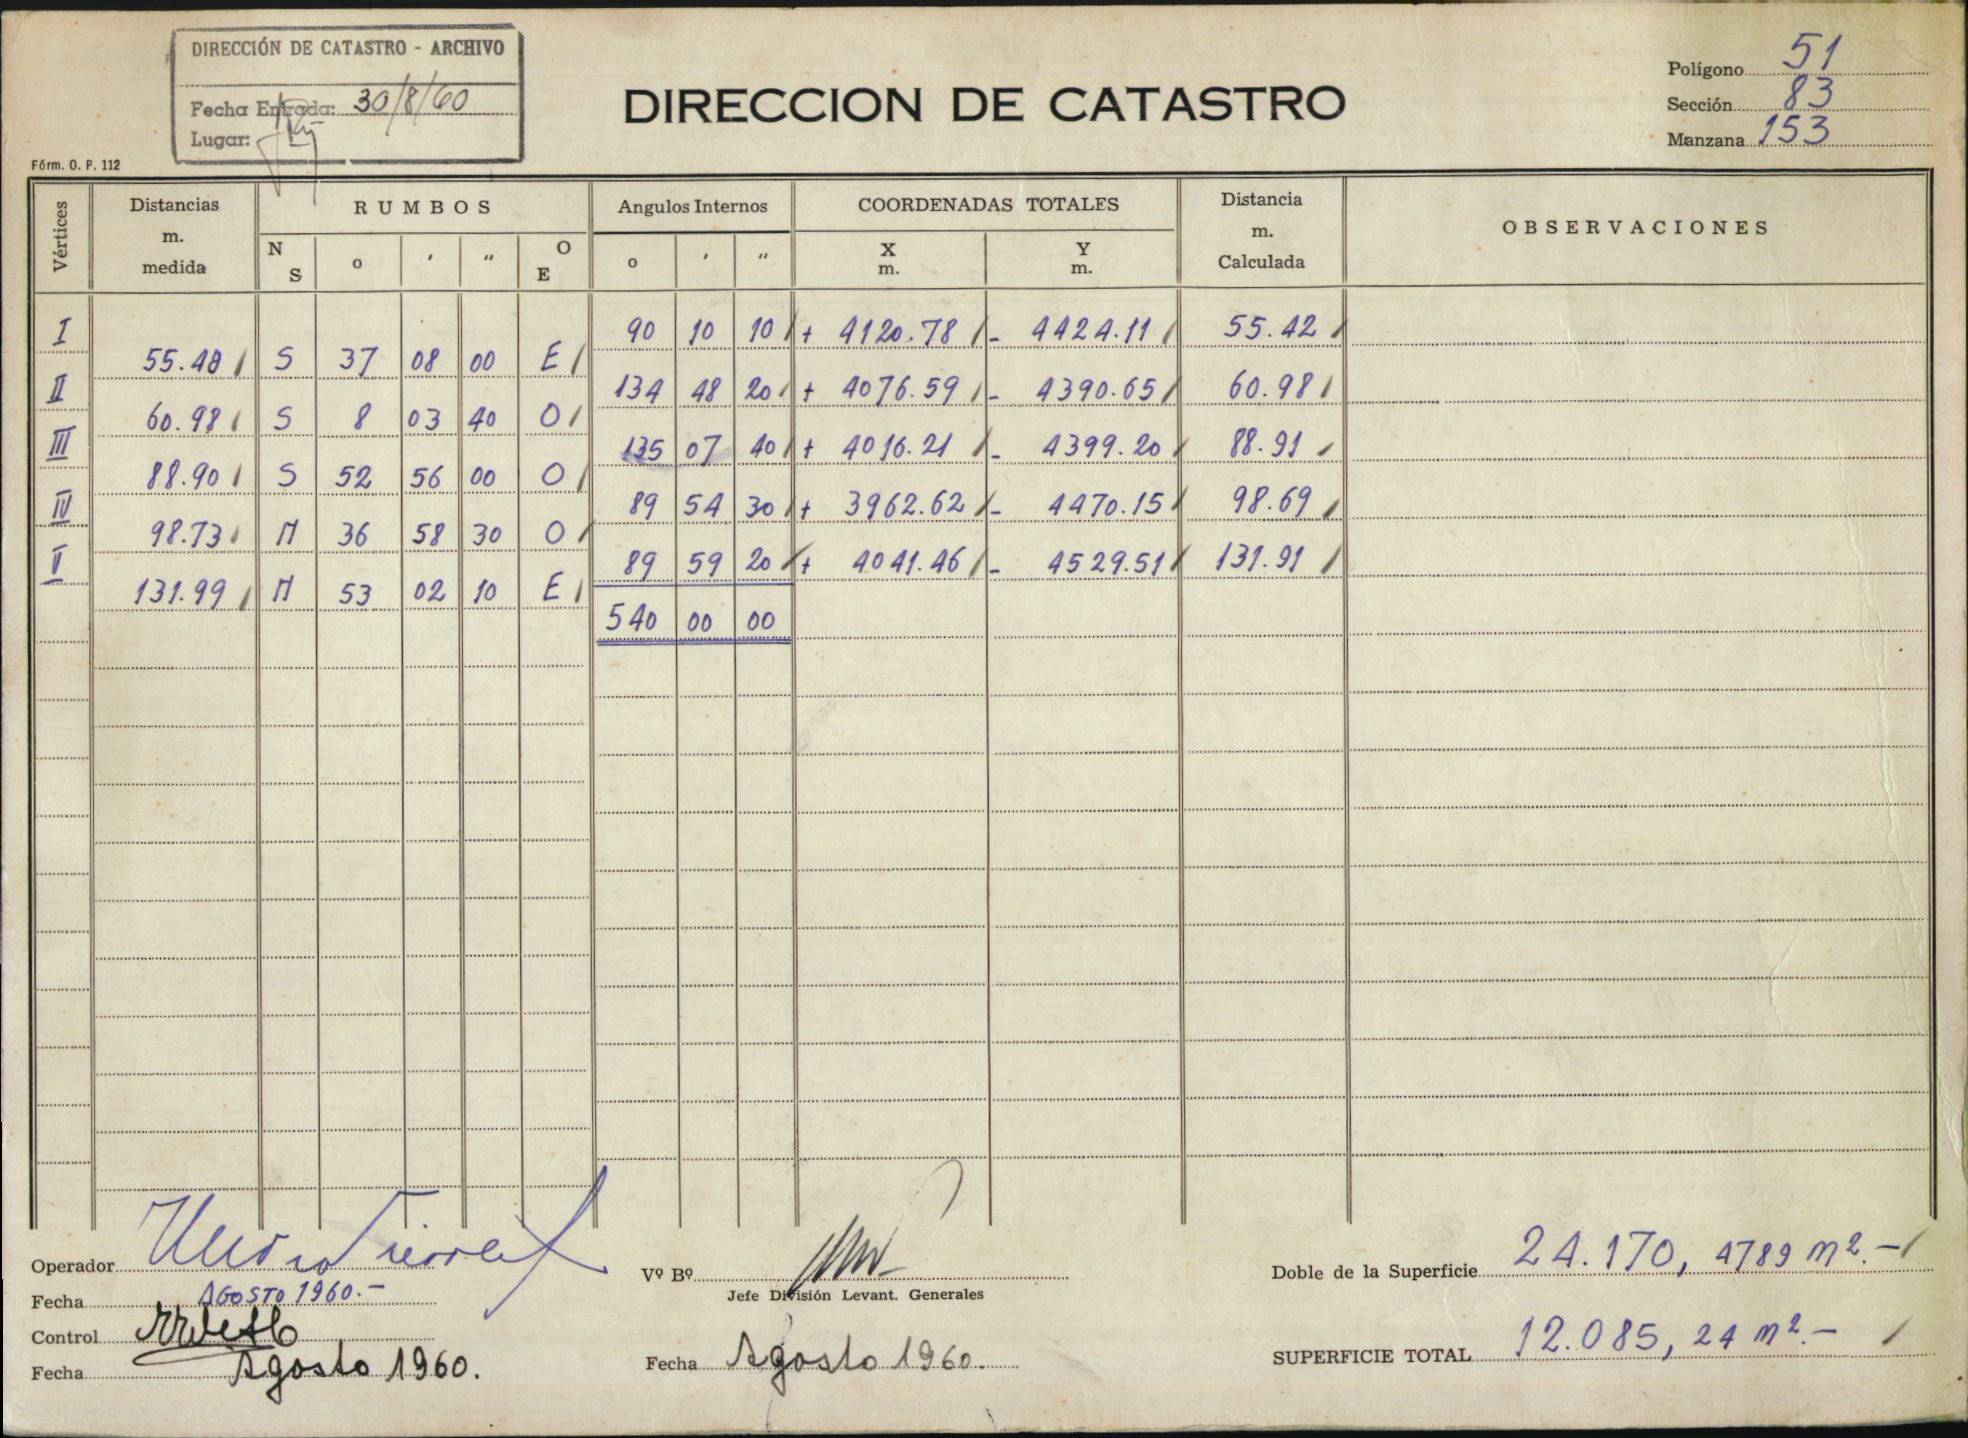 DIRECCIÓN DE CATASTRO - ARCHIVO
Fecha Entrada: 30/8/60
Lugar:
DIRECCION DE CATASTRO
Polígono 51
Sección 83
Manzana 153
Fórm. O. P. 112
Vértices
Distancias m. medida
RUMBOS
Angulos Internos
COORDENADAS TOTALES
Distancia m. Calculada
OBSERVACIONES
N S o ' " O E o ' " X m. Y m.
I 90 10 10 + 4120.78 - 4424.11 55.42
55.48 S 37 08 00 E
II 134 48 20 + 4076.59 - 4390.65 60.98
60.98 S 8 03 40 O
III 135 07 40 + 4016.21 - 4399.20 88.91
88.90 S 52 56 00 O
IV 89 54 30 + 3962.62 - 4470.15 98.69
98.73 N 36 58 30 O
V 89 59 20 + 4041.46 - 4529.51 131.91
131.99 N 53 02 10 E
540 00 00
Operador
Fecha AGOSTO 1960.-
Control
Fecha Agosto 1960.
Vº Bº
Jefe División Levant. Generales
Fecha Agosto 1960.
Doble de la Superficie 24.170, 4789 m2.-
SUPERFICIE TOTAL 12.085, 24 m2.-